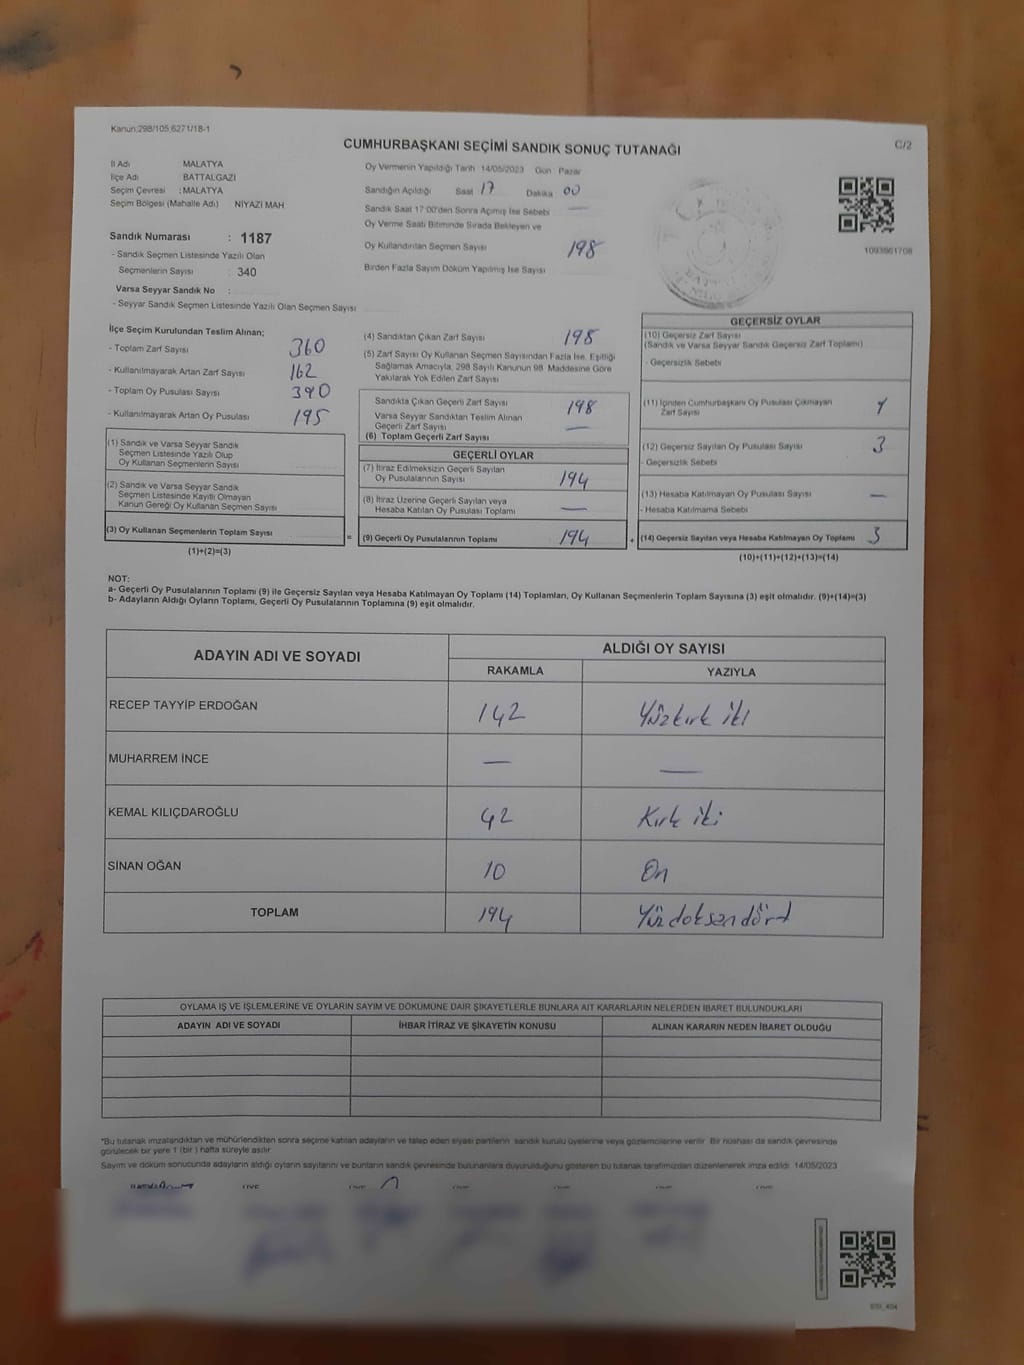 Kanun:298/105,6271/18-1
CUMHURBAŞKANI SEÇİMİ SANDIK SONUÇ TUTANAĞI
C/2
İl Adı MALATYA
İlçe Adı BATTALGAZİ
Seçim Çevresi :MALATYA
Seçim Bölgesi (Mahalle Adı) NİYAZİ MAH
Sandık Numarası : 1187
- Sandık Seçmen Listesinde Yazılı Olan
Seçmenlerin Sayısı : 340
Varsa Seyyar Sandık No :
- Seyyar Sandık Seçmen Listesinde Yazılı Olan Seçmen Sayısı
Oy Vermenin Yapıldığı Tarih 14/05/2023 Gün Pazar
Sandığın Açıldığı Saat 17 Dakika 00
Sandık Saat 17:00'den Sonra Açımış İse Sebebi —
Oy Verme Saati Bitiminde Sırada Bekleyen ve
Oy Kullandırılan Seçmen Sayısı 198
Birden Fazla Sayım Döküm Yapılmış İse Sayısı
1093861708
İlçe Seçim Kurulundan Teslim Alınan;
- Toplam Zarf Sayısı 360
- Kullanılmayarak Artan Zarf Sayısı 162
- Toplam Oy Pusulası Sayısı 390
- Kullanılmayarak Artan Oy Pusulası 195
(1) Sandık ve Varsa Seyyar Sandık
Seçmen Listesinde Yazılı Olup
Oy Kullanan Seçmenlerin Sayısı
(2) Sandık ve Varsa Seyyar Sandık
Seçmen Listesinde Kayıtlı Olmayan
Kanun Gereği Oy Kullanan Seçmen Sayısı
(3) Oy Kullanan Seçmenlerin Toplam Sayısı =
(1)+(2)=(3)
(4) Sandıktan Çıkan Zarf Sayısı 198
(5) Zarf Sayısı Oy Kullanan Seçmen Sayısından Fazla İse, Eşitliği
Sağlamak Amacıyla, 298 Sayılı Kanunun 98. Maddesine Göre
Yakılarak Yok Edilen Zarf Sayısı
Sandıkta Çıkan Geçerli Zarf Sayısı 198
Varsa Seyyar Sandıktan Teslim Alınan
Geçerli Zarf Sayısı —
(6) Toplam Geçerli Zarf Sayısı
GEÇERLİ OYLAR
(7) İtiraz Edilmeksizin Geçerli Sayılan
Oy Pusulalarının Sayısı 194
(8) İtiraz Üzerine Geçerli Sayılan veya
Hesaba Katılan Oy Pusulası Toplamı —
(9) Geçerli Oy Pusulalarının Toplamı 194 +
GEÇERSİZ OYLAR
(10) Geçersiz Zarf Sayısı
(Sandık ve Varsa Seyyar Sandık Geçersiz Zarf Toplamı)
- Geçersizlik Sebebi
(11) İçinden Cumhurbaşkanı Oy Pusulası Çıkmayan
Zarf Sayısı 1
(12) Geçersiz Sayılan Oy Pusulası Sayısı 3
- Geçersizlik Sebebi
(13) Hesaba Katılmayan Oy Pusulası Sayısı —
- Hesaba Katılmama Sebebi
(14) Geçersiz Sayılan veya Hesaba Katılmayan Oy Toplamı 3
(10)+(11)+(12)+(13)=(14)
NOT:
a- Geçerli Oy Pusulalarının Toplamı (9) ile Geçersiz Sayılan veya Hesaba Katılmayan Oy Toplamı (14) Toplamları, Oy Kullanan Seçmenlerin Toplam Sayısına (3) eşit olmalıdır. (9)+(14)=(3)
b- Adayların Aldığı Oyların Toplamı, Geçerli Oy Pusulalarının Toplamına (9) eşit olmalıdır.
ADAYIN ADI VE SOYADI
ALDIĞI OY SAYISI
RAKAMLA YAZIYLA
RECEP TAYYİP ERDOĞAN 142 Yüzkırk iki
MUHARREM İNCE — —
KEMAL KILIÇDAROĞLU 42 Kırk iki
SİNAN OĞAN 10 On
TOPLAM 194 Yüzdoksandört
OYLAMA İŞ VE İŞLEMLERİNE VE OYLARIN SAYIM VE DÖKÜMÜNE DAİR ŞİKAYETLERLE BUNLARA AİT KARARLARIN NELERDEN İBARET BULUNDUKLARI
ADAYIN ADI VE SOYADI İHBAR İTİRAZ VE ŞİKAYETİN KONUSU ALINAN KARARIN NEDEN İBARET OLDUĞU
*Bu tutanak imzalandıktan ve mühürlendikten sonra seçime katılan adayların ve talep eden siyasi partilerin sandık kurulu üyelerine veya gözlemcilerine verilir. Bir nüshası da sandık çevresinde
görülecek bir yere 1 (bir ) hafta süreyle asılır.
Sayım ve döküm sonucunda adayların aldığı oyların sayılarını ve bunların sandık çevresinde bulunanlara duyurulduğunu gösteren bu tutanak tarafımızdan düzenlenerek imza edildi. 14/05/2023